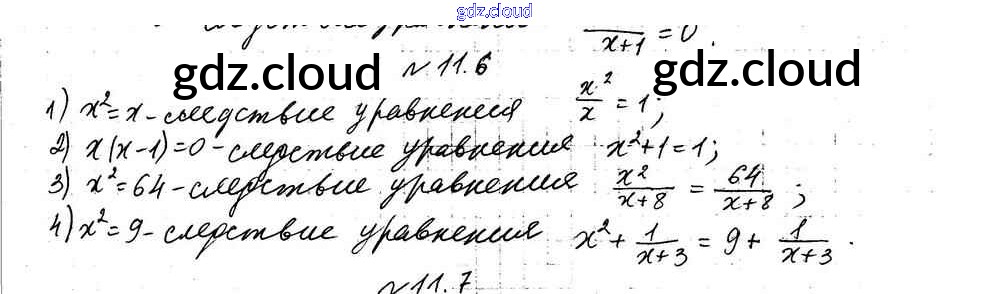 gdz.cloud
x+1 = 0.
№ 11.6
gdz.cloud gdz.cloud
1) x² = x - следствие уравнения x²/x = 1;
2) x(x-1)=0 - следствие уравнения x²+1=1;
3) x²=64 - следствие уравнения x²/(x+8) = 64/(x+8);
4) x²=9 - следствие уравнения x² + 1/(x+3) = 9 + 1/(x+3).
№ 11.7